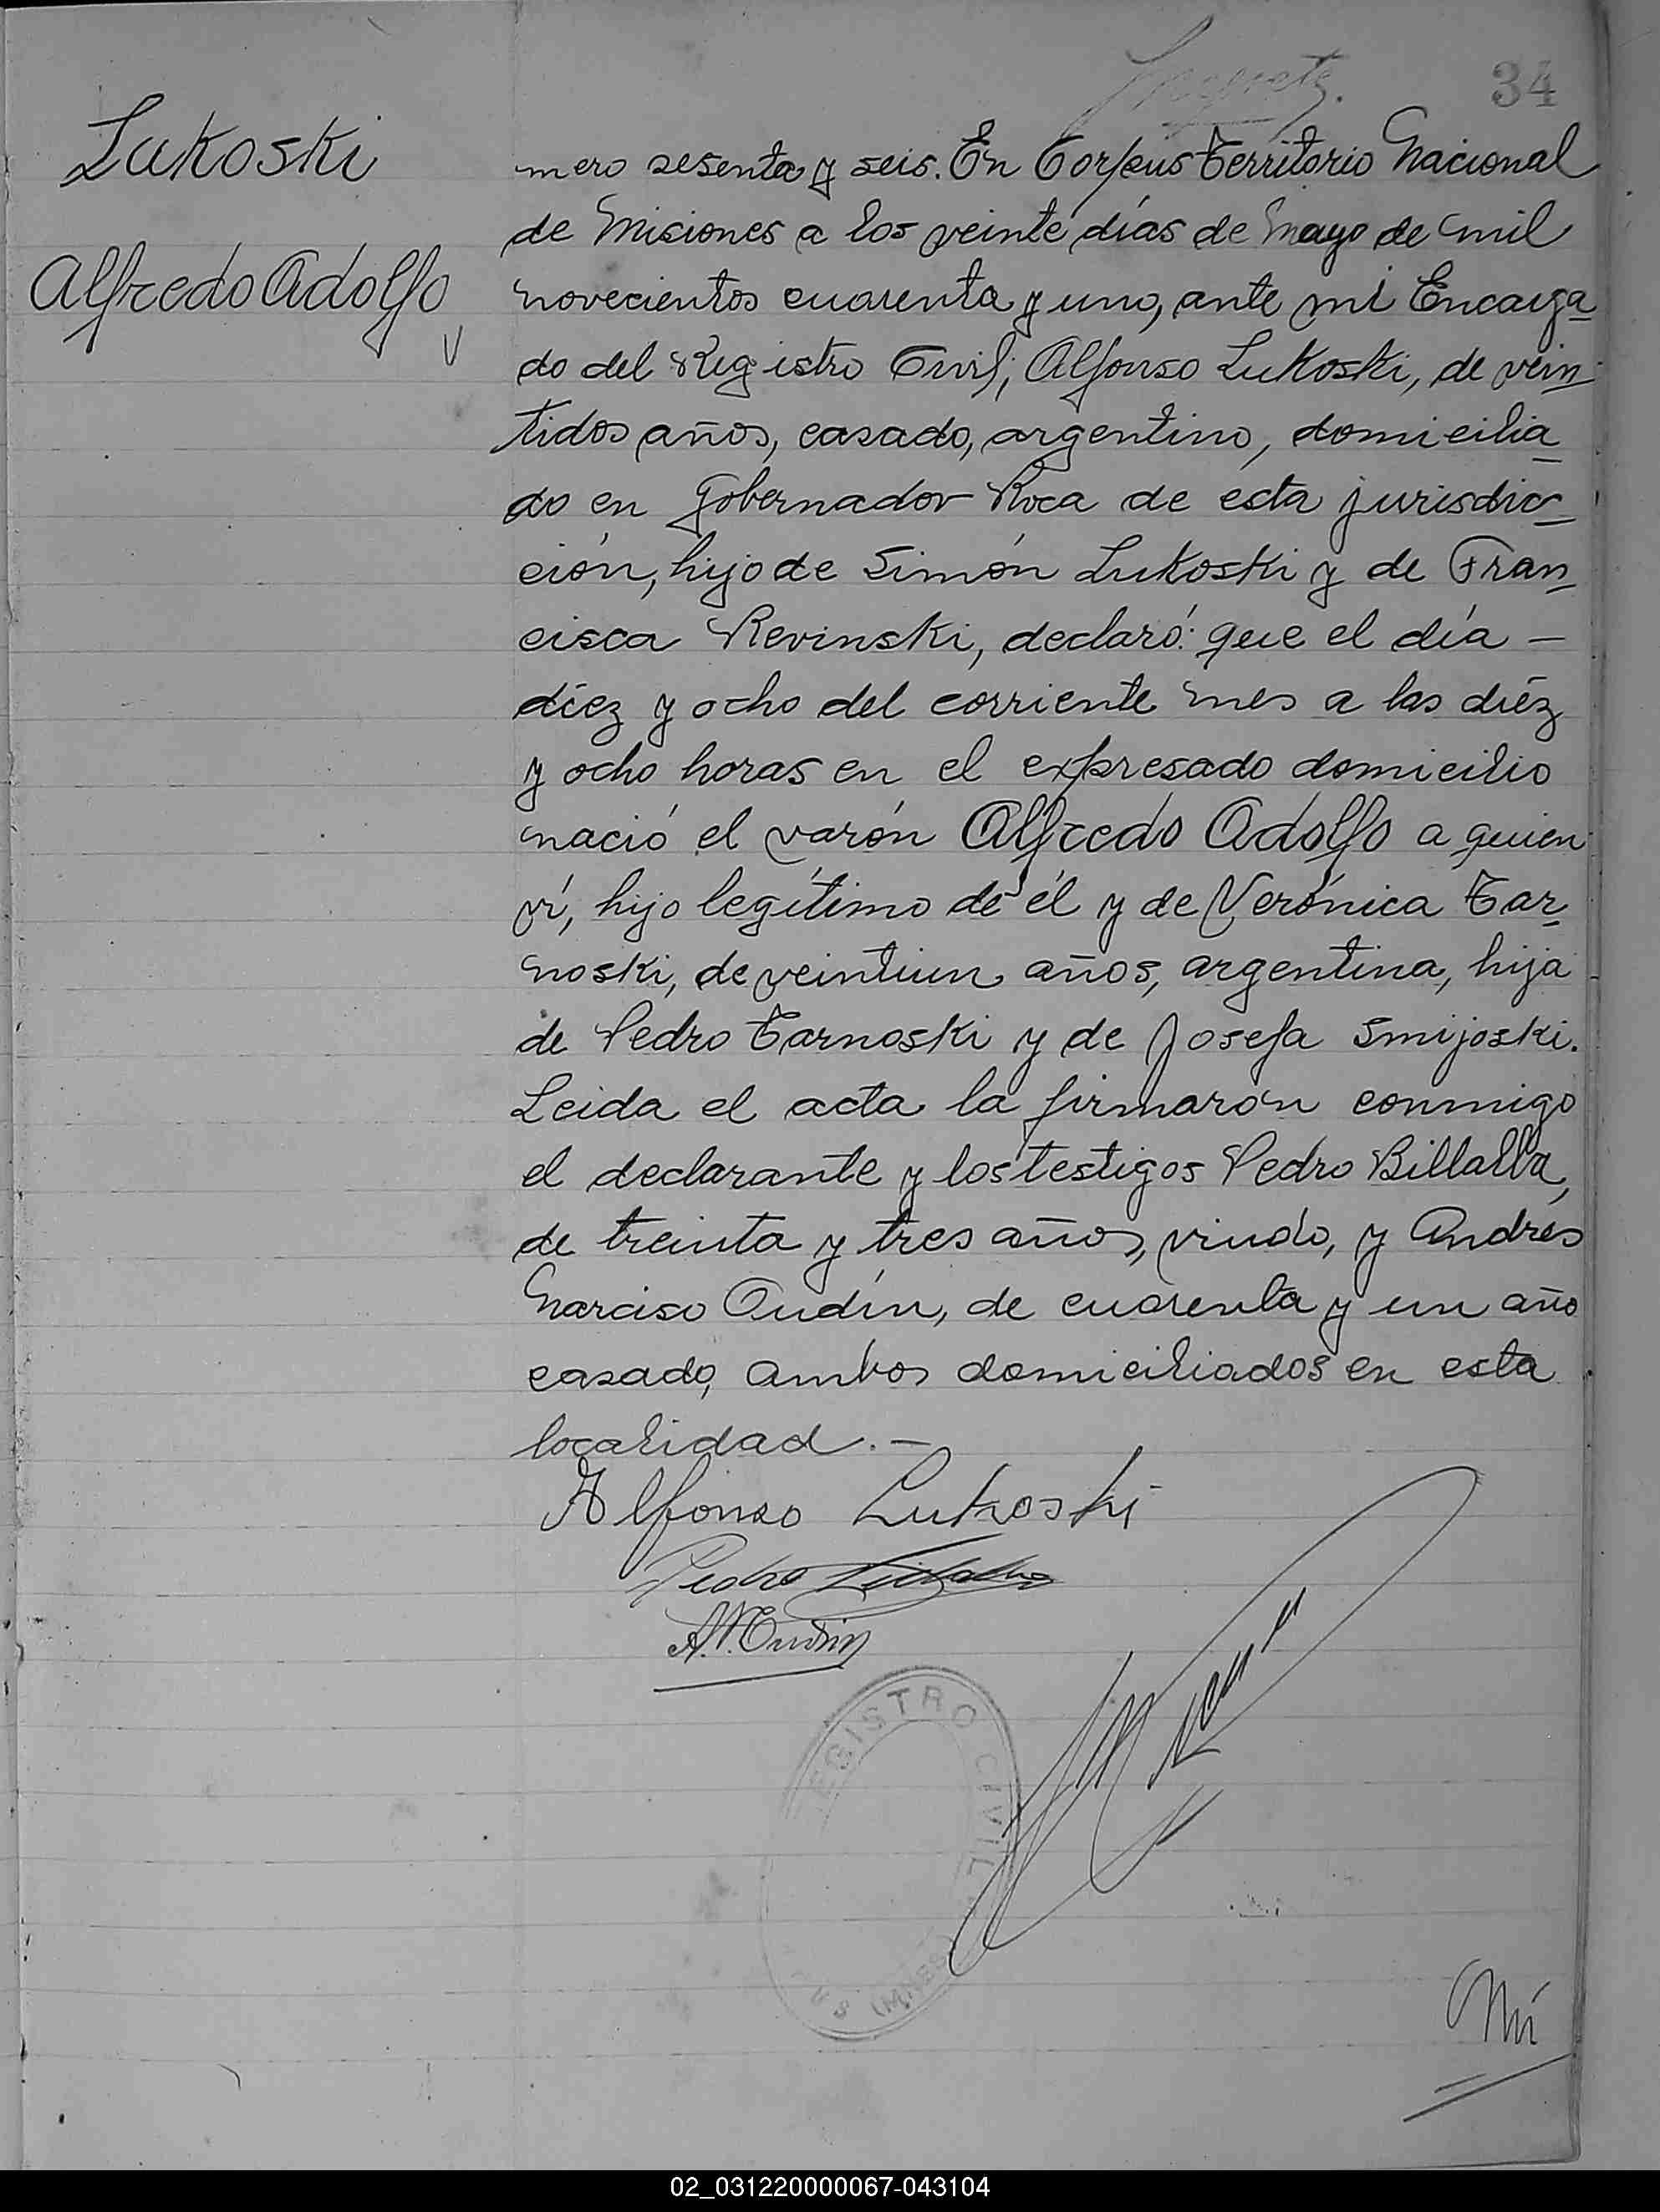 34
Lukoski
Alfredo Adolfo
mero sesenta y seis. En Corpus Territorio Nacional
de Misiones a los veinte días de Mayo de mil
novecientos cuarenta y uno, ante mi Encarga
do del Registro Civil, Alfonso Lukoski, de vein
tidos años, casado, argentino, domicilia
do en Gobernador Roca de esta jurisdic
ción, hijo de Simón Lukoski y de Fran
cisca Revinski, declaró: que el día —
diez y ocho del corriente mes a las diéz
y ocho horas en el expresado domicilio
nació el varón Alfredo Adolfo a quien
ví, hijo legítimo de él y de Verónica Tar
noski, de veintiun años, argentina, hija
de Pedro Tarnoski y de Josefa Smijoski.
Leida el acta la firmaron conmigo
el declarante y los testigos Pedro Billalba,
de treinta y tres años, viudo, y Andrés
Narciso Oudín, de cuarenta y un año
casado, ambos domiciliados en esta
localidad.—
Alfonso Lukoski
Pedro Billalba
A. N. Oudin
REGISTRO CIVIL
Nú
02_031220000067-043104